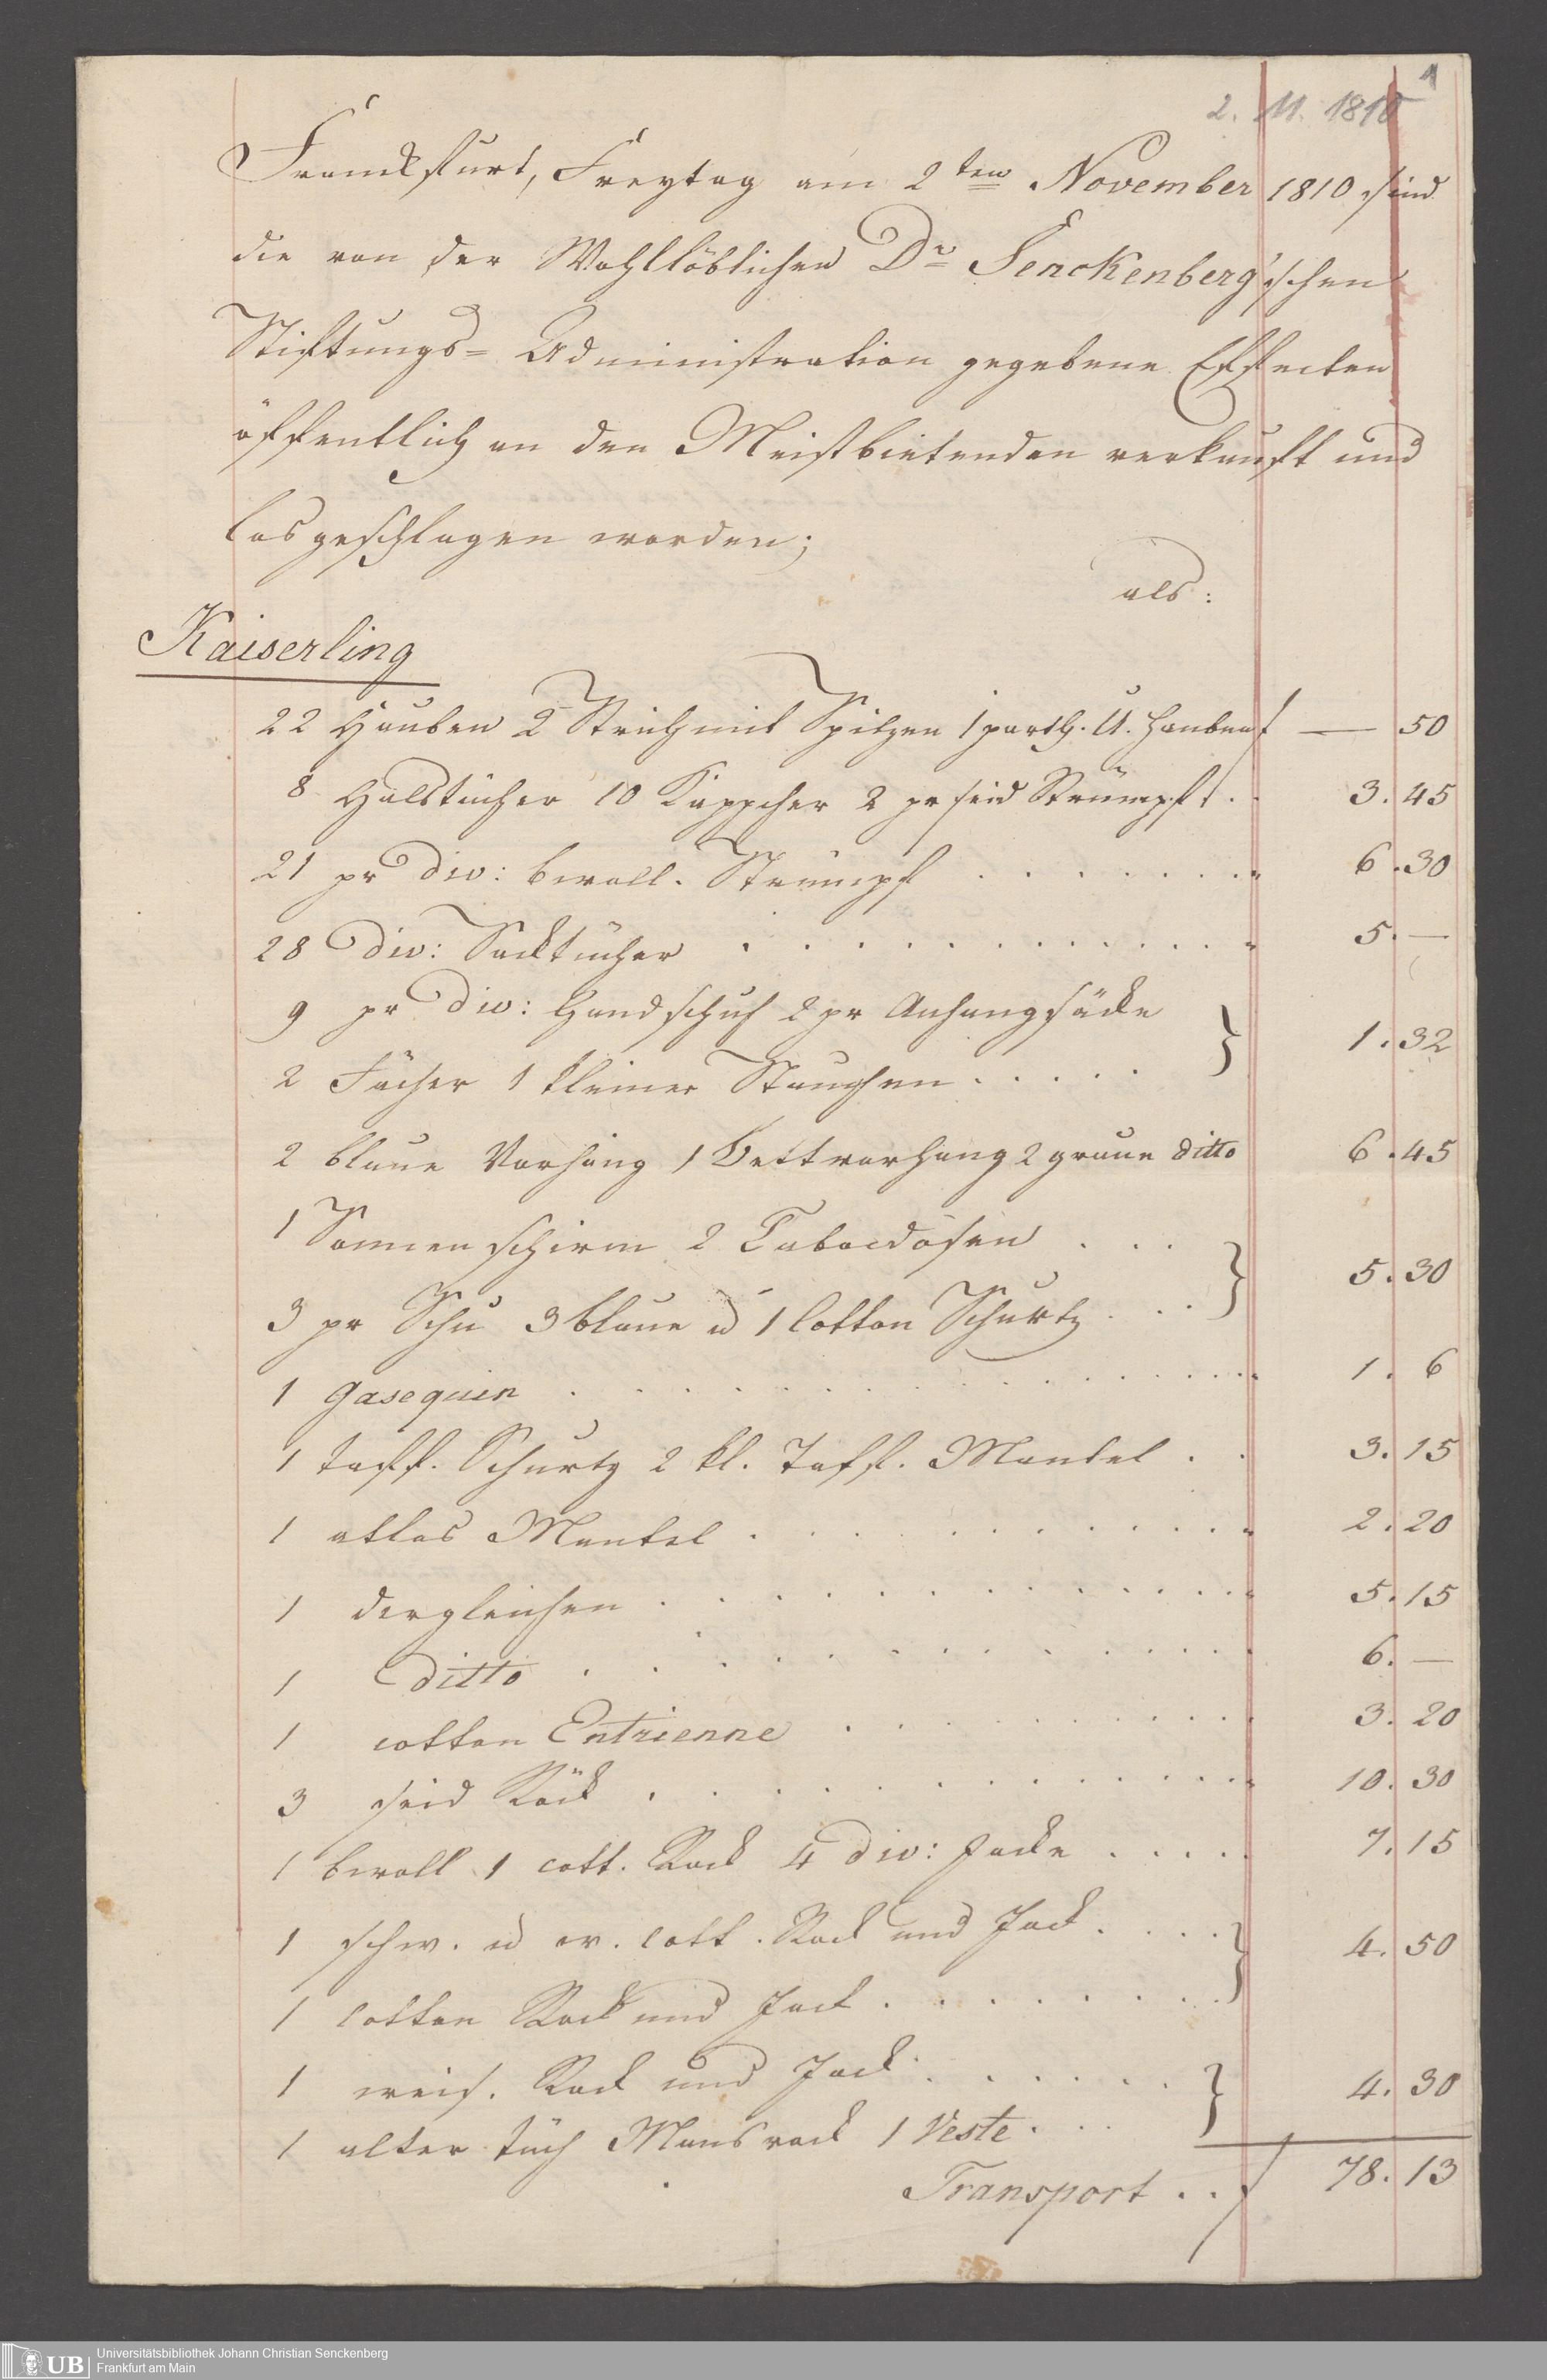 1
2. 11. 1810
Franckfurt, Freytag am 2ten November 1810 sind
die von der Wohllöblichen Dr Senckenberg'schen
Stiftungs= Administration gegebene Effecten
öffentlich an den Meistbietenden verkauft und
losgeschlagen worden;
als:
Kaiserling
22 Hauben 2 Strich mit Spitzen 1 parth. U. Hauben f — 50
8 Halstücher 10 Käppcher 2 pr seid Strümpf . . 3. 45
21 pr div: bwoll. Strümpf . . . . . . . 6. 30
28 div: Sacktücher . . . . . . . . . . 5. —
9 pr div: Handschuh 2 pr Anhangsäcke
2 Fächer 1 kleiner Stauchen . . . . . } 1. 32
2 blaue Vorhäng 1 Bettvorhang 2 graue ditto 6. 45
1 Sonnenschirm 2 Tabacdosen . . .
3 pr Schu 3 blaue u 1 Cotton Schurtz . . . } 5. 30
1 Gasequin . . . . . . . . . . . 1. 6
1 taff. Schurtz 2 kl. Taff. Mantel . . 3. 15
1 atlas Mantel . . . . . . . . . . 2. 20
1 dergleichen . . . . . . . . . . 5. 15
1 ditto . . . . . . . . . . 6. —
1 cotton Entrienne . . . . . . . . 3. 20
3 seid Röck . . . . . . . . . . 10. 30
1 bwoll 1 cott. Rock 4 div: Jacke . . . . 7. 15
1 schw. u w. Cott. Rock und Jack . . . .
1 Cotton Rock und Jack . . . . . . . } 4. 50
1 weis. Rock und Jack . . . . . .
1 alter tuch Mansrock 1 Veste . . . } 4. 30
Transport . . f 78. 13
UB Universitätsbibliothek Johann Christian Senckenberg
Frankfurt am Main